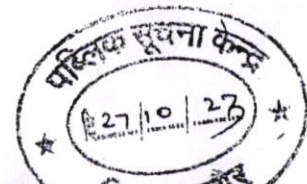 पब्लिक सूचना केन्द्र
27 10 23